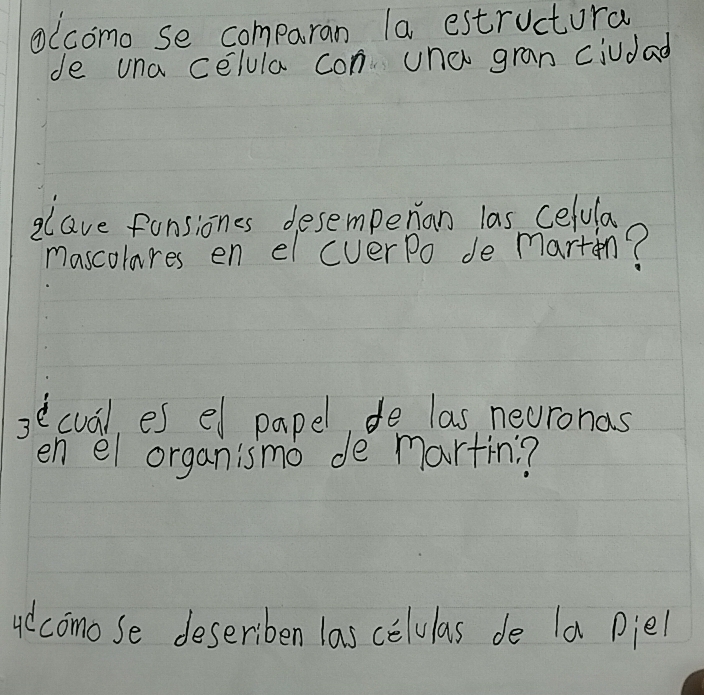 ①¿cómo se comparan la estructura
de una célula con una gran ciudad
2¿que funsiónes desempeñan las celula
mascolares en el cuerpo de martin?
3¿cuál es el papel de las neuronas
en el organismo de martin?
4¿cómo se deseriben las células de la piel